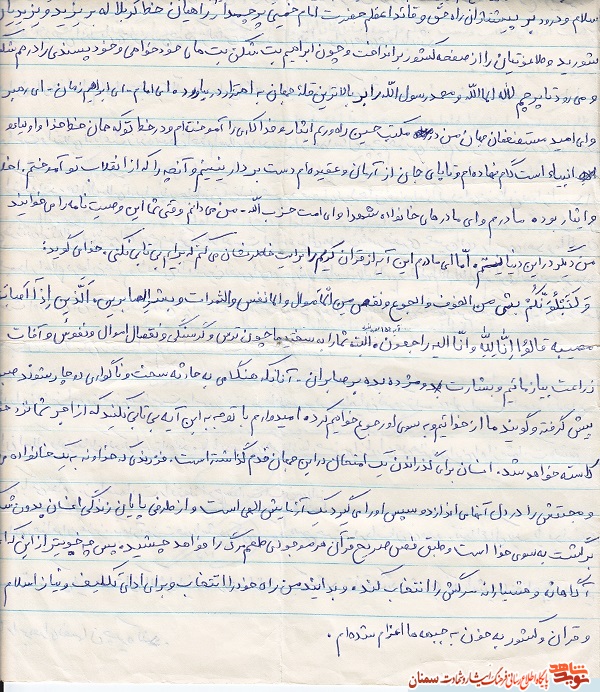 سلام و درود بر پیشتازان راه حق و قائد اعظم حضرت امام خمینی پرچمدار راهیان خط کربلا که بر یزید و یزیدیان
شورید و طاغوتیان را از صفحه کشور برانداخت و چون ابراهیم بت شکن بت های خودخواهی و خودپسندی را درهم
و می رود تا پرچم لااله الاالله و محمد رسول الله را بر بالاترین قله جهان به اهتزاز دربیاورد. ای امام - ای ابراهیم زمان - ای رهبر
و ای امید مستضعفان جهان من در مکتب حسین راه و رسم ایثار و فداکاری را آموخته ام و در خط تو که همان خط خدا و اولیا و
انبیاء است گام نهاده ام و تا پای جان از آرمان و عقیده ام دست بردار نیستم و آنچه را که از انقلاب تو آموختم.
و ایثار بوده. مادرم و ای مادرهای خانواده شهدا و ای امت حزب الله - من می دانم وقتی شما این وصیت نامه را می خوانید
من دیگر در این دنیا نیستم. اما ای مادرم این آیه از قرآن کریم را برایت خاطرنشان می کنم که برایم بی تابی نکنی. خدای گوید:
وَلَنَبْلُوَنَّكُمْ بشئ من الخوف والجوع و نقص من الأموال والانفس والثمرات و بشر الصابرین، الَّذین إذا أصابتهم
مصیبة قالوا إنّا لِلّه وانّا الیه راجعون. البته شما را به سختیها چون ترس و گرسنگی و نقصان اموال و نفوس و آفات
زراعت بیازمائیم و بشارت و مژده بده بر صابران - آنانکه هنگامی به حادثه سخت و ناگواری دچار شوند صبر
پیش گرفته و گویند ما از خدائیم و به سوی او رجوع خواهیم کرد. امیدوارم با توجه به این آیه بی تابی نکنید که از اجر شما نزد
کاسته خواهد شد. انسان برای گذراندن یک امتحان در این جهان قدم گذاشته است. فرزندی که خداوند به یک خانواده
و محبتش را در دل آنها می اندازد و سپس او را می گیرد یک آزمایش الهی است و از طرفی پایان زندگی انسان بدون شک
برگشت به سوی خدا است و طبق نص صریح قرآن هر موجودی طعم مرگ را خواهد چشید. پس چه خوبتر از این که
آگاهانه و هشیارانه مرگش را انتخاب کند. و بدانید من راه خود را انتخاب و برای ادای تکلیف و نیاز اسلام
و قرآن و کشور به خون به جبهه ها اعزام شده ام.
نوید شاهد پایگاه اطلاع رسانی فرهنگ ایثار و شهادت سمنان